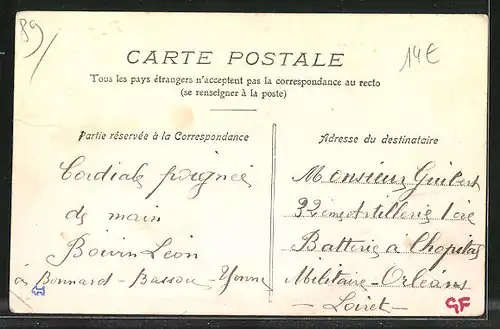 89
14€
CARTE POSTALE
Tous les pays étrangers n'acceptent pas la correspondance au recto
(se renseigner à la poste)
Partie réservée à la Correspondance
Cordiale poignée
de main
Boivin Léon
à Bonnard - Bassou - Yonne
Adresse du destinataire
Monsieur Guibert
32ème Artillerie 1ère
Batterie à l'hopital
Militaire - Orléans
- Loiret -
GF